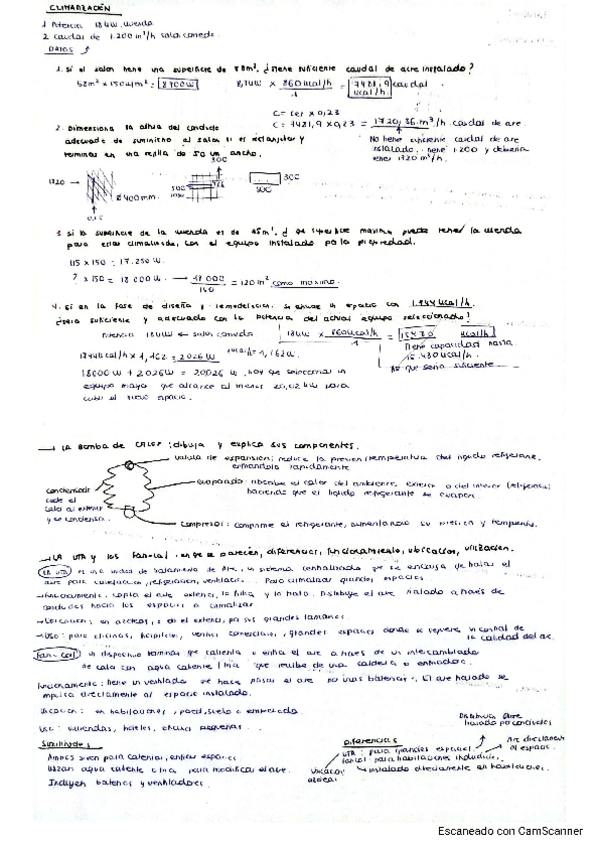 CLIMATIZACIÓN
1 Potencia 18 kW vivienda
2 Caudal de 1.200 m³/h salón comedor
DATOS
1. Si el salón tiene una superficie de 58m², ¿tiene suficiente caudal de aire instalado?
58m² × 150W/m² = 8700W
× 860kcal/h
1
= 7481,9 kcal/h
caudal
C = 7481,9 × 0,23 = 1720,36 m³/h caudal de aire
No tiene suficiente caudal de aire
instalado, tiene 1.200 y debería
tener 1720 m³/h.
2. Dimensiona la altura del conducto
adecuado de suministro al salón si es rectangular y
termina en una rejilla de 50 cm ancho.
300
1720
ø400mm.
500
300
500
3. Si la superficie de la vivienda es de 115m², ¿qué superficie máxima puede tener la vivienda
para estar climatizada, con el equipo instalado por la propiedad.
115 × 150 = 17.250 W.
? × 150 = 18000 W. → 18000
150
= 120 m² como máximo.
4. Si en la fase de diseño y remodelación se anexe un espacio con 1.744 kcal/h.
¿sería suficiente y adecuado con la potencia del actual equipo seleccionado?
Potencia 18kW ← salón comedor
18kW × 860kcal/h
1
= 15480 kcal/h
Tiene capacidad hasta
15.480 kcal/h
No que sería suficiente
1744 kcal/h × 1,162 = 2026W
18000W + 2026W = 20026 W. Hay que seleccionar un
equipo mayor que alcance al menos 20,02 kW para
cubrir el nuevo espacio.
→ LA BOMBA DE CALOR: dibuja y explica sus componentes.
válvula de expansión: reduce la presión/temperatura del líquido refrigerante,
enfriándolo rápidamente
evaporador: absorbe el calor del ambiente, exterior o del interior (refrigeración)
haciendo que el líquido refrigerante se evapore.
condensador
cede el
calor al exterior
y se condensa.
Compresor: comprime el refrigerante, aumentando su presión y temperatura.
→ LA UTA y los fan-coil. en qué se parecen, diferencias, funcionamiento, ubicación, utilización.
LA UTA es una unidad de tratamiento de aire, un sistema centralizado que se encarga de tratar el
aire para calefacción, refrigeración, ventilación. Para climatizar grandes espacios
→ Funcionamiento: capta el aire exterior, lo filtra y lo trata. Distribuye el aire tratado a través de
conductos hacia los espacios a climatizar
→ Ubicación: en azoteas, o en el exterior, por sus grandes tamaños
→ Uso: para oficinas, hospitales, centros comerciales, grandes espacios donde se requiere un control de
la calidad del aire.
Fan-coil un dispositivo terminal que calienta o enfría el aire a través de un intercambiador
de calor con agua caliente / fría que recibe de una caldera o enfriadora.
Funcionamiento: tiene un ventilador que hace pasar el aire por unas baterías. El aire tratado se
impulsa directamente al espacio instalado.
Ubicación: en habitaciones, pared, suelo o empotrado
Uso: viviendas, hoteles, oficinas pequeñas.
Similitudes
Ambos sirven para calentar, enfriar espacios
Utilizan agua caliente o fría para modificar el aire.
Incluyen baterías y ventiladores.
Diferencias
Distribuye aire
tratado por conductos
UTA: para grandes espacios
Aire directamente
al espacio.
fancoil para habitaciones individuales.
Ubicación
azoteas
instalado directamente en habitaciones.
Escaneado con CamScanner